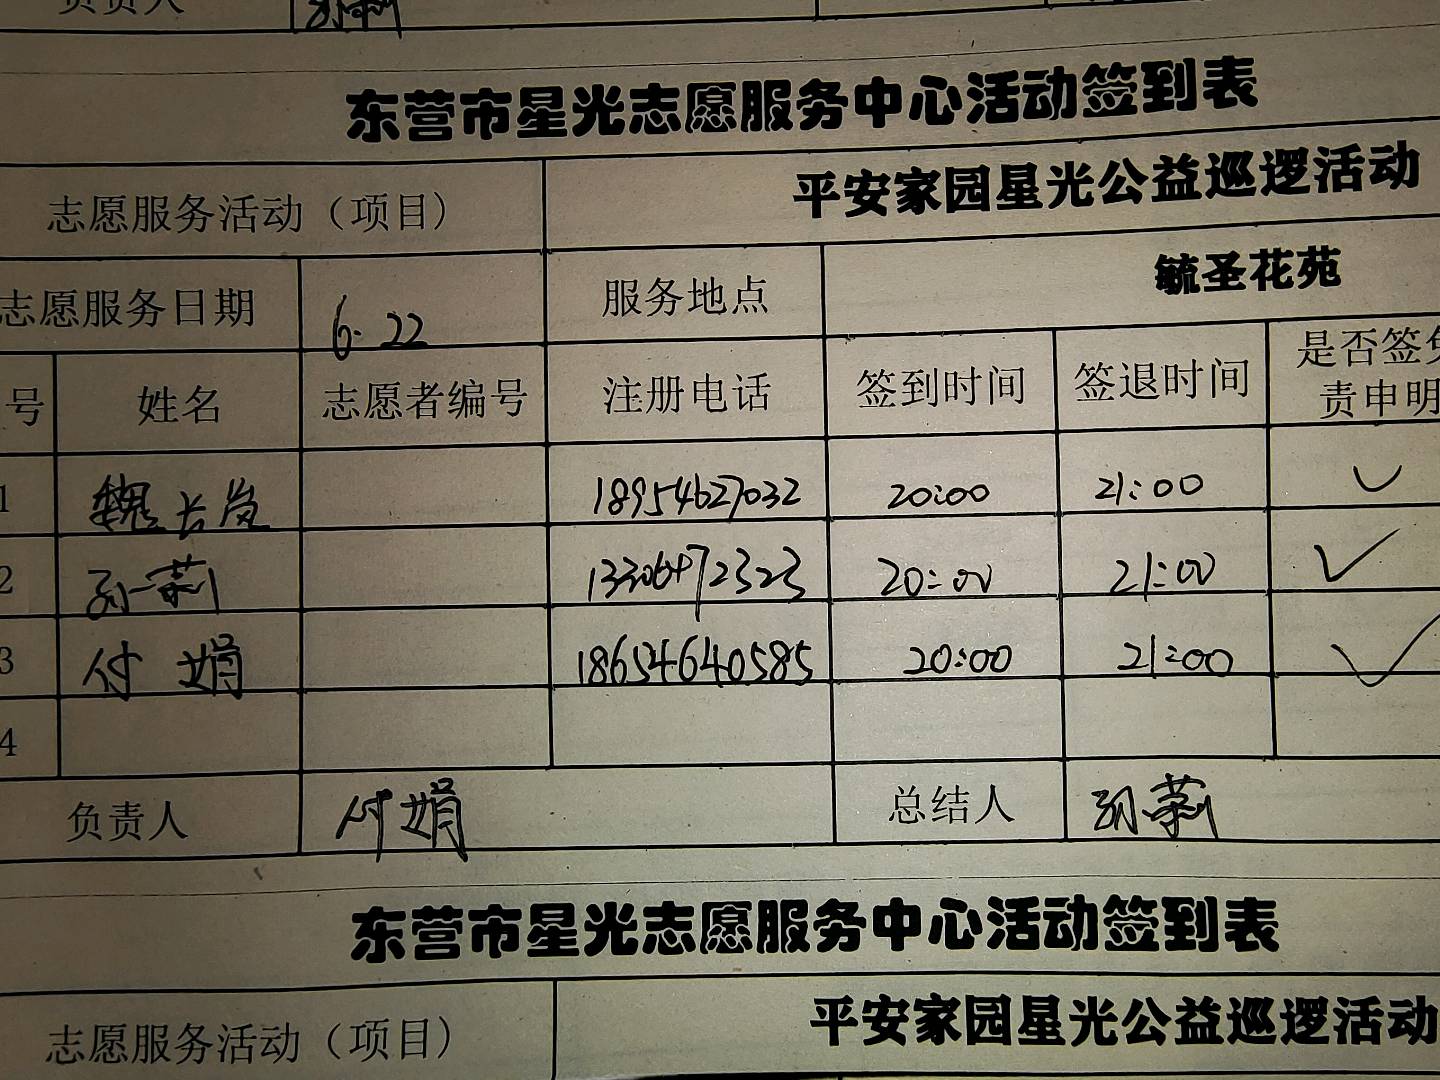 负责人 孙莉
东营市星光志愿服务中心活动签到表
志愿服务活动（项目） 平安家园星光公益巡逻活动
志愿服务日期 6.22 服务地点 毓圣花苑
号 姓名 志愿者编号 注册电话 签到时间 签退时间 是否签免
责申明
1 魏长岚 18954627032 20:00 21:00 ✓
2 孙莉 13306472323 20:00 21:00 ✓
3 付娟 18654640585 20:00 21:00 ✓
4
负责人 付娟 总结人 孙莉
东营市星光志愿服务中心活动签到表
志愿服务活动（项目） 平安家园星光公益巡逻活动